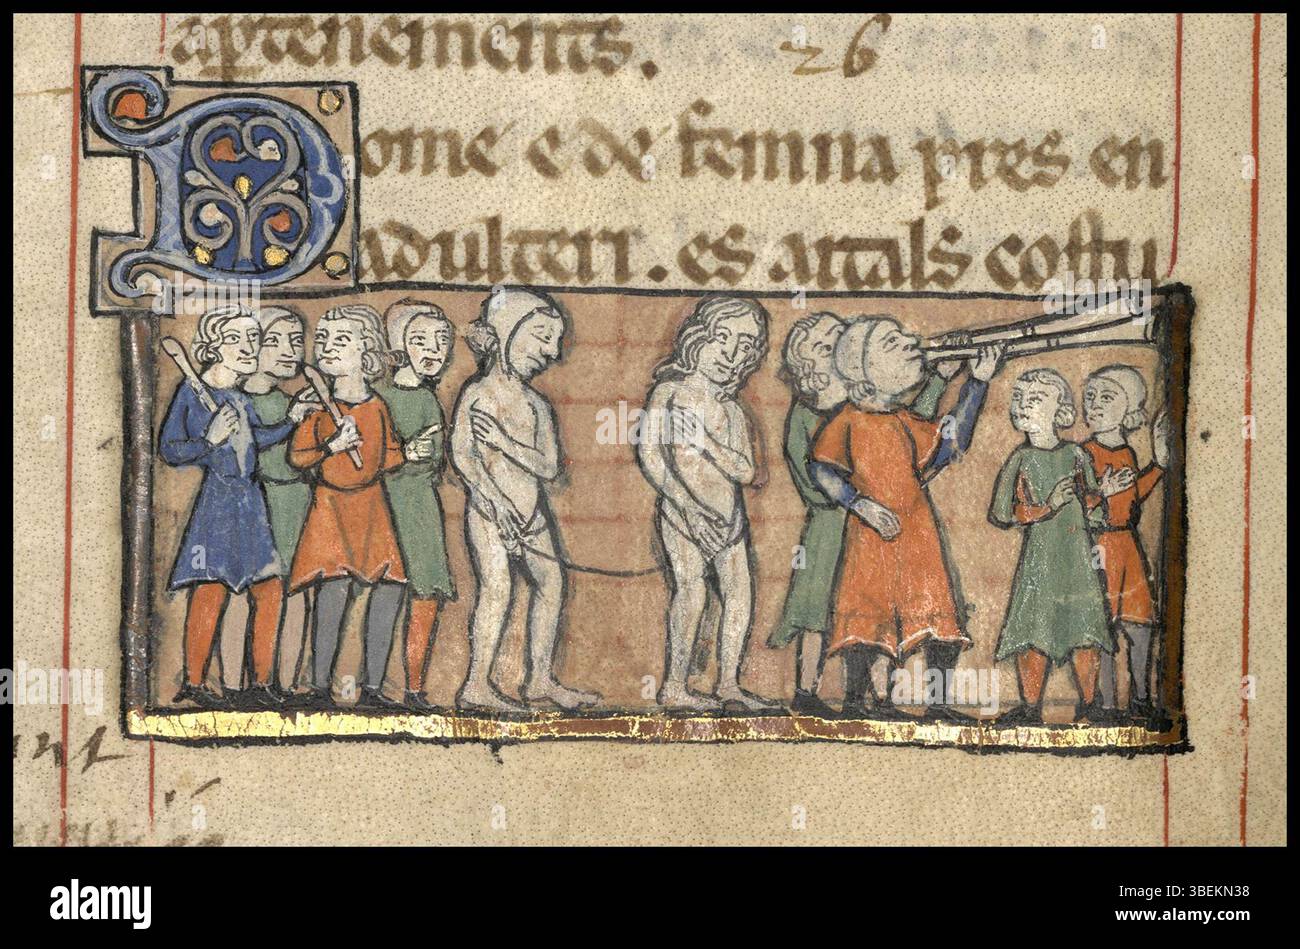 apertenements. 26
Dome e de femna pres en
adulteri. es aitals costu
a alamy
Image ID: 3BEKN38
www.alamy.com